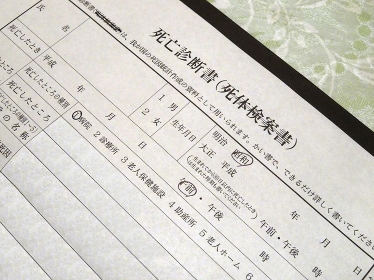 死亡診断書(死体検案書)
は、我が国の死因統計作成の資料として用いられます。かい書で、できるだけ詳しく書いてください
氏名
1 男
2 女
生年月日
明治 昭和
大正 平成
年 月 日
午前・午後 時
死亡したとき
平成 年 月 日
午前・午後 時
死亡したところの種別
1 病院 2 診療所 3 老人保健施設 4 助産所 5 老人ホーム 6
死亡したところ